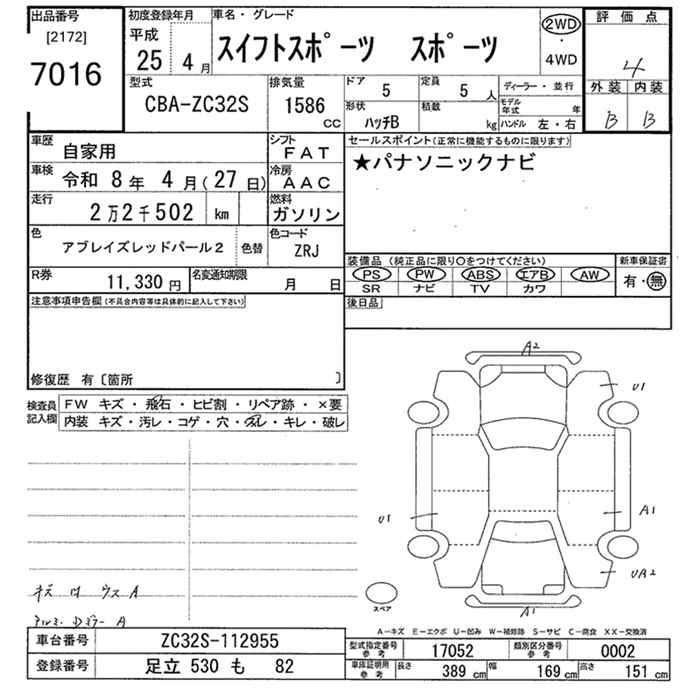 出品番号
[2172]
7016
初度登録年月
平成
25 4 月
車名・グレード
スイフトスポーツ スポーツ
2WD
・
4WD
評価点
4
外装 内装
B B
型式
CBA-ZC32S
排気量
1586
CC
ドア
5
定員
5 人
形状
ハッチB
積載
kg
ディーラー・並行
モデル年式 年
ハンドル 左・右
車歴
自家用
シフト
FAT
車検
令和 8 年 4 月(27 日)
冷房
AAC
走行
2万2千502 km
燃料
ガソリン
色
アブレイズレッドパール2
色替
色コード
ZRJ
R券
11,330 円
名変通知期限
月 日
セールスポイント(正常に機能するものに限ります)
★パナソニックナビ
装備品(純正品に限り○をつけてください)
PS PW ABS エアB AW
SR ナビ TV カワ
新車保証書
有・無
後日品
注意事項申告欄(不具合内容等は具体的に記入して下さい)
修復歴 有〔箇所 〕
検査員
記入欄
FW キズ・飛石・ヒビ割・リペア跡・×要
内装 キズ・汚レ・コゲ・穴・スレ・キレ・破レ
A2
U1
A1
U1
UA2
A1
スペア
A
A
A-キズ E-エクボ U-凹み W-補修跡 S-サビ C-腐食 XX-交換済
車台番号 ZC32S-112955
登録番号 足立 530 も 82
型式指定番号
参考
17052
類別区分番号
参考
0002
車庫証明用
参考
長さ 389 cm 幅 169 cm 高さ 151 cm